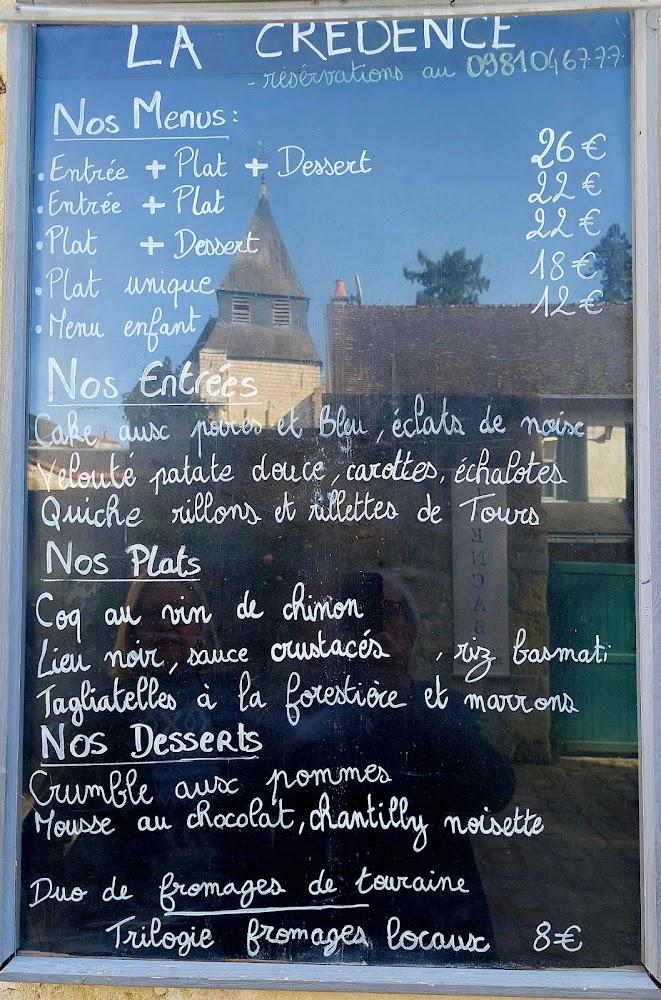 LA CREDENCE
- réservations au 0981046777
Nos Menus:
. Entrée + Plat + Dessert 26 €
. Entrée + Plat 22 €
. Plat + Dessert 22 €
. Plat unique 18 €
. Menu enfant 12 €
Nos Entrées
Cake aux poires et Bleu, éclats de noix
Velouté patate douce, carottes, échalotes
Quiche rillons et rillettes de Tours
Nos Plats
Coq au vin de chinon
Lieu noir, sauce crustacés , riz basmati
Tagliatelles à la forestière et marrons
Nos Desserts
Crumble aux pommes
Mousse au chocolat, chantilly noisette
Duo de fromages de touraine
Trilogie fromages locaux 8€